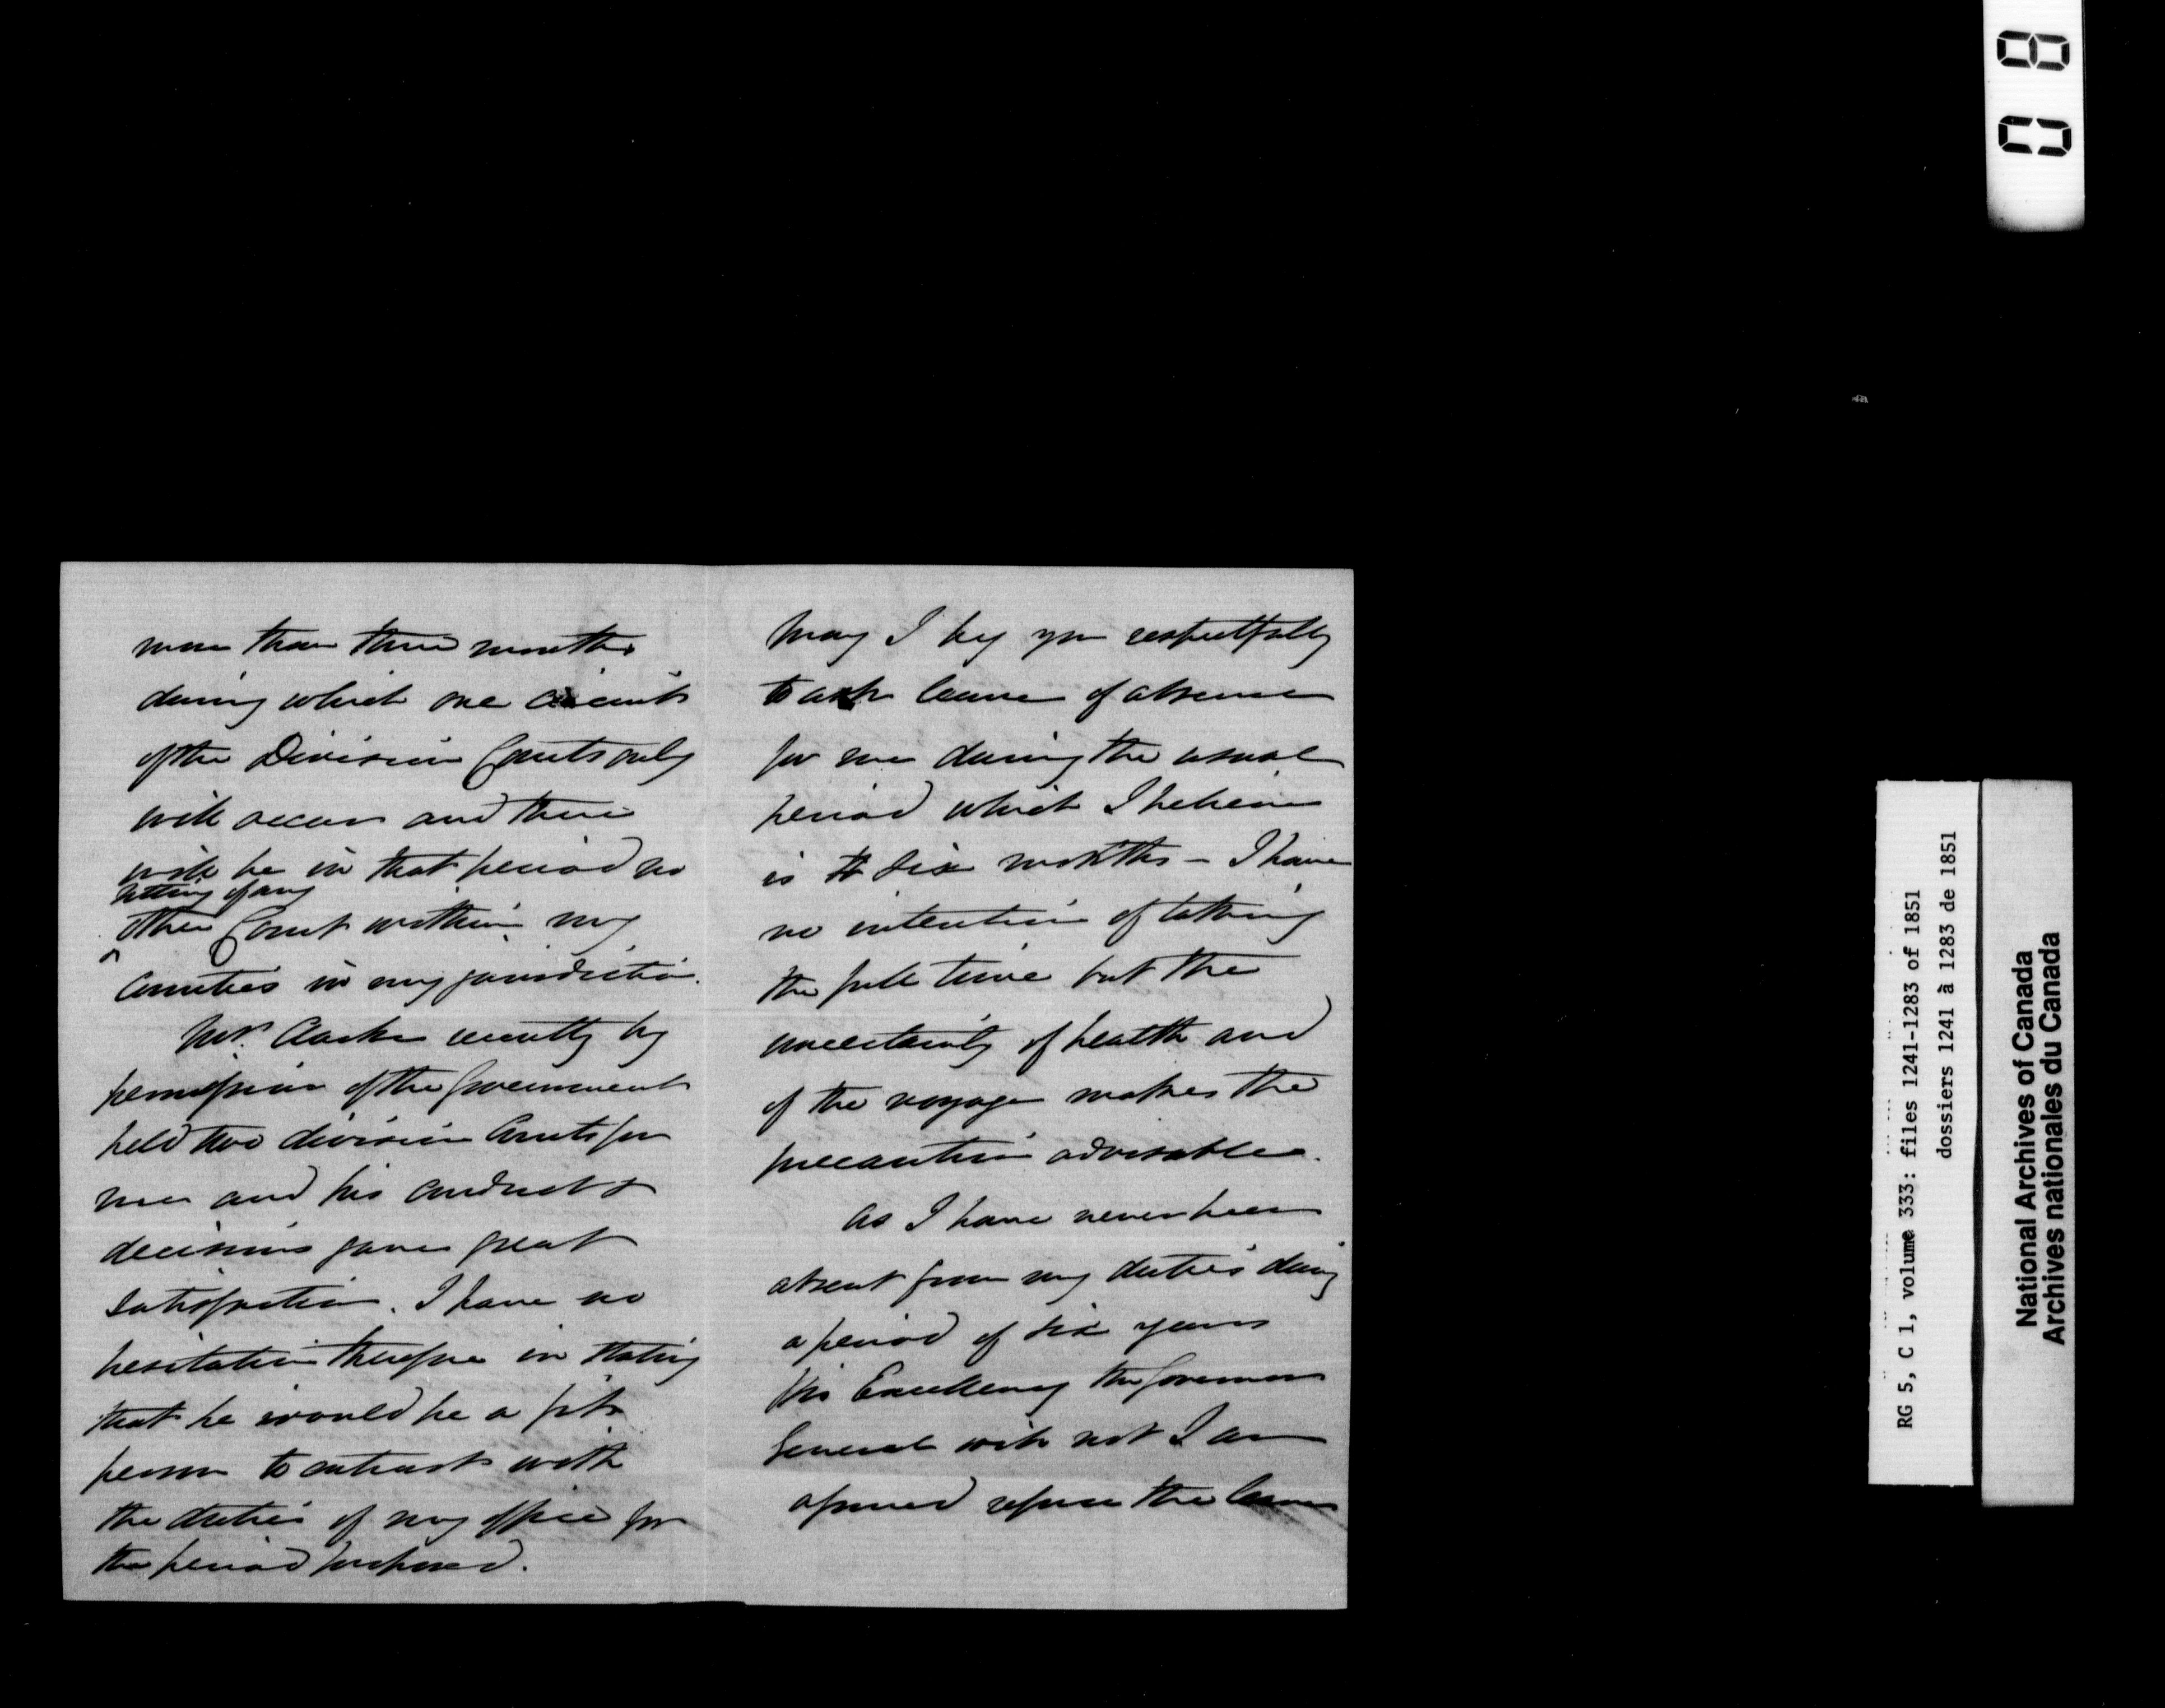 more than three months
during which one circuit
of the Division Courts only
will occur and there
will be in that period no
sitting of any
other Court within my
Counties in my jurisdiction.
Mr. Clarke recently by
permission of the Government
held two division Courts for
me and his conduct &
decisions gave great
satisfaction. I have no
hesitation therefore in stating
that he would be a fit
person to entrust with
the duties of my office for
the period proposed.
May I beg you respectfully
to ask leave of absence
for me during the usual
period which I believe
is six months - I have
no intention of taking
the full time but the
uncertainty of health and
of the voyage makes the
precaution advisable.
As I have never been
absent from my duties during
a period of six years
His Excellency the Governor
General will not I am
assured refuse the leave
08
RG 5, C 1, volume 333: files 1241-1283 of 1851
dossiers 1241 à 1283 de 1851
National Archives of Canada
Archives nationales du Canada